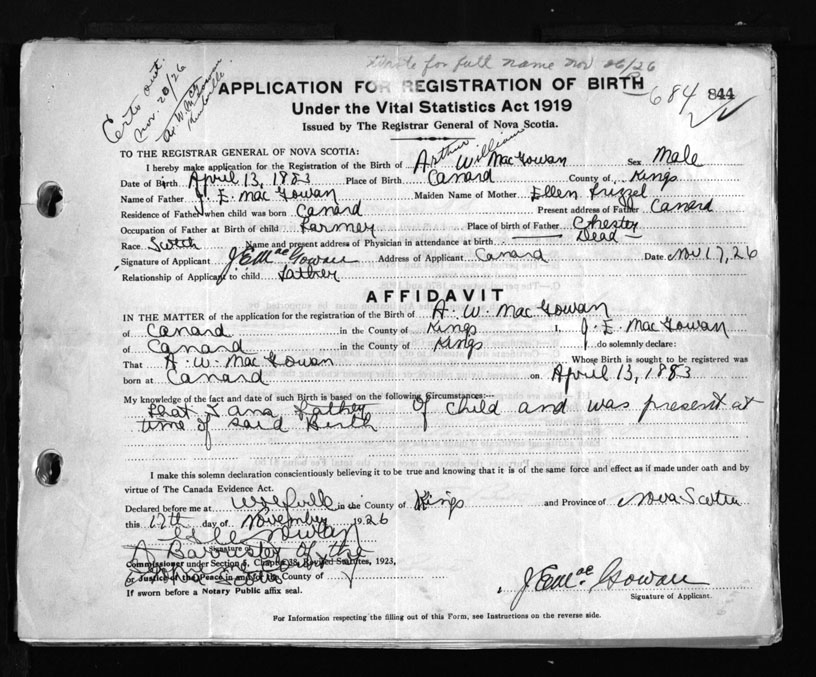 Write for full name Nov 26/26
Certs out.
Nov. 20/26
A. W. McGowan
Kentville
APPLICATION FOR REGISTRATION OF BIRTH
684 844
Under the Vital Statistics Act 1919
Issued by The Registrar General of Nova Scotia.
TO THE REGISTRAR GENERAL OF NOVA SCOTIA:
I hereby make application for the Registration of the Birth of Arthur William MacGowan Sex Male
Date of Birth April 13, 1883 Place of Birth Canard County of Kings
Name of Father J. E. MacGowan Maiden Name of Mother Ellen Frizzel
Residence of Father when child was born Canard Present address of Father Canard
Occupation of Father at Birth of child Farmer Place of birth of Father Chester
Race Scotch Name and present address of Physician in attendance at birth Dead
Signature of Applicant J E MacGowan Address of Applicant Canard Date Nov 17, 26
Relationship of Applicant to child father
AFFIDAVIT
IN THE MATTER of the application for the registration of the Birth of A. W. MacGowan
of Canard in the County of Kings I, J. E. MacGowan
of Canard in the County of Kings do solemnly declare:
That A. W. MacGowan Whose Birth is sought to be registered was
born at Canard on April 13, 1883
My knowledge of the fact and date of such Birth is based on the following Circumstances:--
that I am father of child and was present at
time of said Birth
I make this solemn declaration conscientiously believing it to be true and knowing that it is of the same force and effect as if made under oath and by
virtue of The Canada Evidence Act.
Declared before me at Wolfville in the County of Kings and Province of Nova Scotia
this 17th day of November 1926
Signature of
A Barrister of the
Commissioner under Section 4, Chapter 38, Revised Statutes, 1923,
or Justice of the Peace in and for the County of
If sworn before a Notary Public affix seal.
J E MacGowan
Signature of Applicant.
For Information respecting the filling out of this Form, see Instructions on the reverse side.